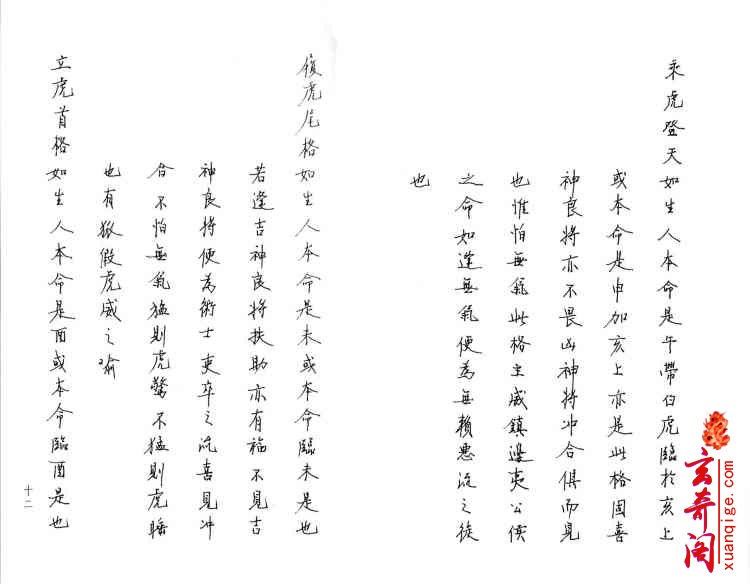 乘虎登天如生人本命是午帶白虎臨於亥上
或本命是申加亥上亦是此格固喜
神良將亦不畏凶神將冲合俱而見
也惟怕無氣此格主威鎮邊夷公侯
之命如逢無氣便為無賴惡泼之徒
也
履虎尾格如生人本命是未或本命臨未是也
若逢吉神良將扶助亦有福不見吉
神良將便為術士吏卒之流喜見冲
合不怕無氣猛則虎驚不猛則虎睡
也有狐假虎威之喻
立虎首格如生人本命是酉或本命臨酉是也
十二
玄奇阁
xuanqige.com